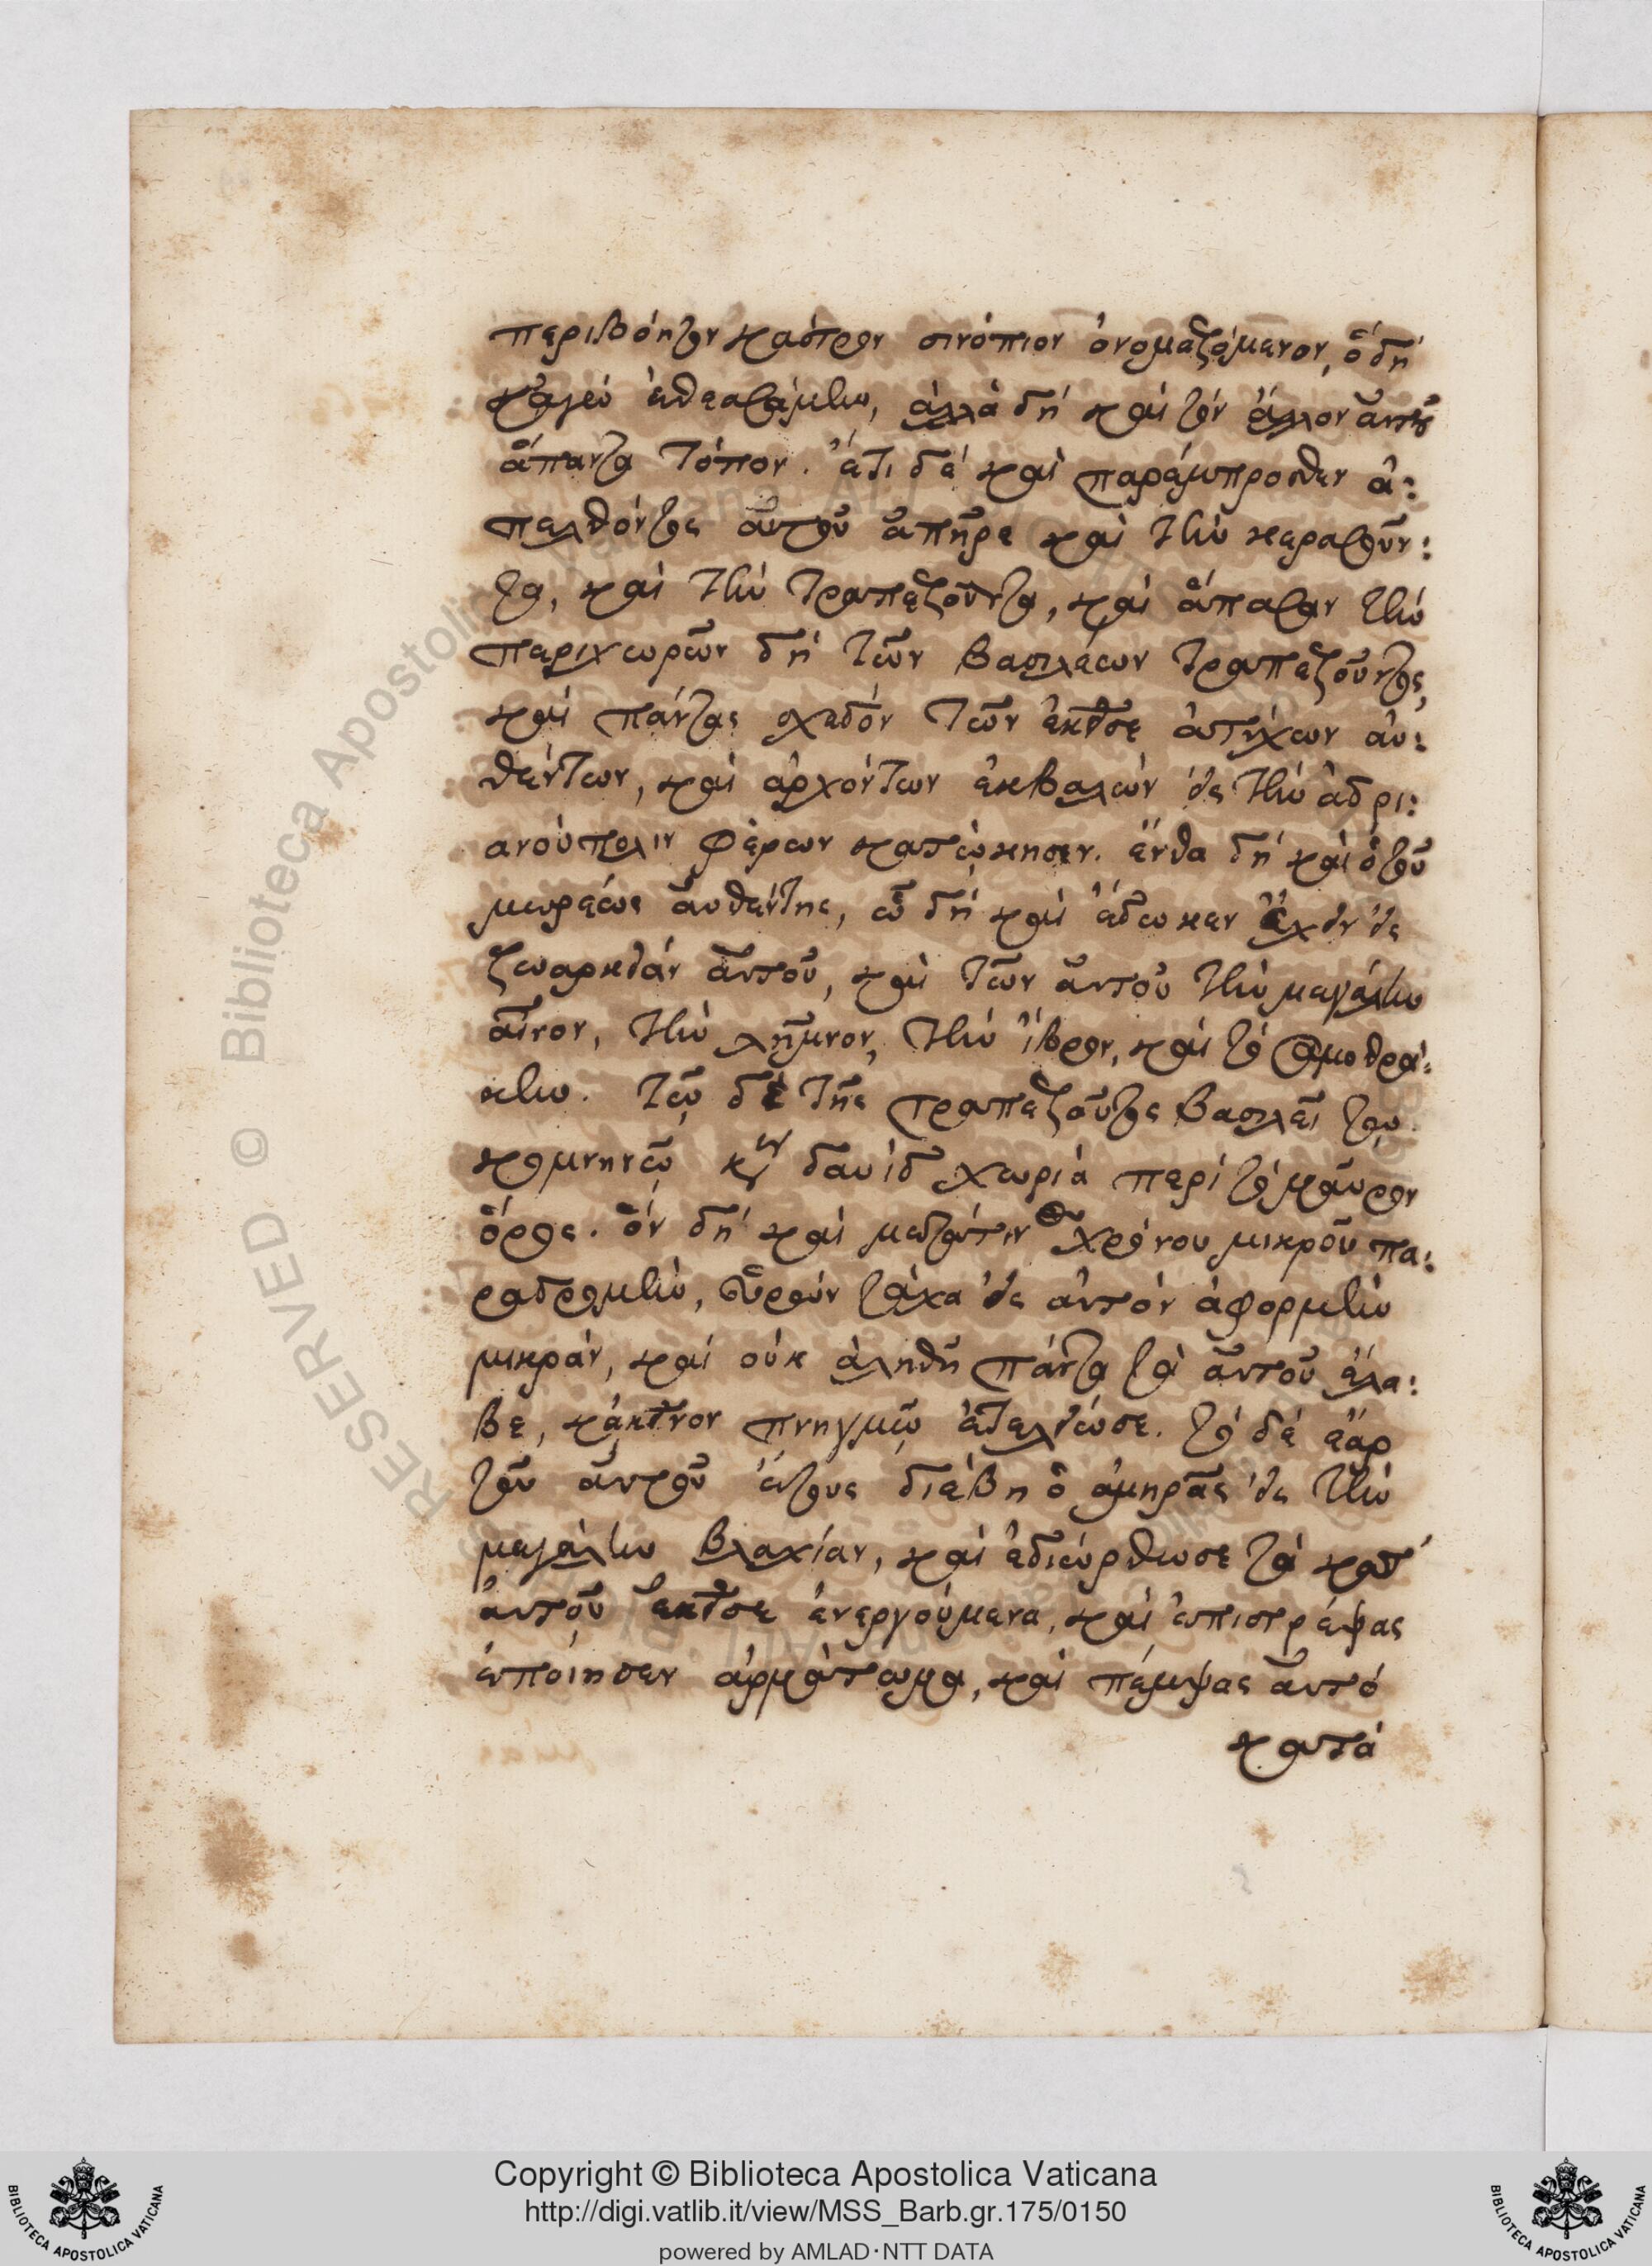 περιβόητον κάστρον σινόπιον ὀνομαζόμενον, ὃ δὴ
κἀγὼ ἐθεασάμην, ἀλλὰ δὴ καὶ τὸν ἄλλον αὐτοῦ
ἅπαντα τόπον. ἔτι δὲ καὶ παρέμπροσθεν ἀ:
πελθόντος αὐτοῦ ἀπῆρε καὶ τὴν κερασοῦν:
τα, καὶ τὴν τραπεζοῦντα, καὶ ἅπασαν τὴν
περιχωρῶν δὴ τῶν βασιλέων τραπεζοῦντος,
καὶ πάντας σχεδὸν τῶν ἐκεῖσε ἀστύχων αὐ:
θέντων, καὶ ἀρχόντων ἐκβαλὼν εἰς τὴν ἀδρι:
ανούπολιν φέρων κατῴκησεν. ἔνθα δὴ καὶ ὁ τοῦ
μωρέως αὐθέντης, ᾧ δὴ καὶ ἔδωκεν ἔχειν εἰς
ζωαρκείαν αὐτοῦ, καὶ τῶν αὐτοῦ τὴν μεγάλην
αἶνον, τὴν λῆμνον, τὴν ἴβρον, καὶ τὸ σαμοθρά:
κην. τῷ δὲ τῆς τραπεζοῦτος βασιλεῖ τῷ
κομνηνῷ κυρ δαυὶδ χωρία περὶ τὸ μαῦρον
ὄρος. ὃν δὴ καὶ μετ' αὐτὴν χρόνου μικροῦ πα:
ραδρομὴν, εὑρὼν τάχα εἰς αὐτὸν ἀφορμὴν
μικρὰν, καὶ οὐκ ἀληθῆ πάντα τὰ αὐτοῦ ἔλα:
βε, κἀκεῖνον πνηγμῷ ἐτελείωσε. τὸ δὲ ἔαρ
τοῦ αὐτοῦ ἔτους διέβη ὁ ἀμηρᾶς εἰς τὴν
μεγάλην βλαχίαν, καὶ ἐδιώρθωσε τὰ κατ'
αὐτοῦ ἐκεῖσε ἐνεργούμενα, καὶ ἐπιστρέψας
ἐποίησεν ἀρμάτωμα, καὶ πέμψας αὐτὸ
κατὰ
Copyright © Biblioteca Apostolica Vaticana
http://digi.vatlib.it/view/MSS_Barb.gr.175/0150
powered by AMLAD·NTT DATA
BIBLIOTECA APOSTOLICA VATICANA
BIBLIOTECA APOSTOLICA VATICANA